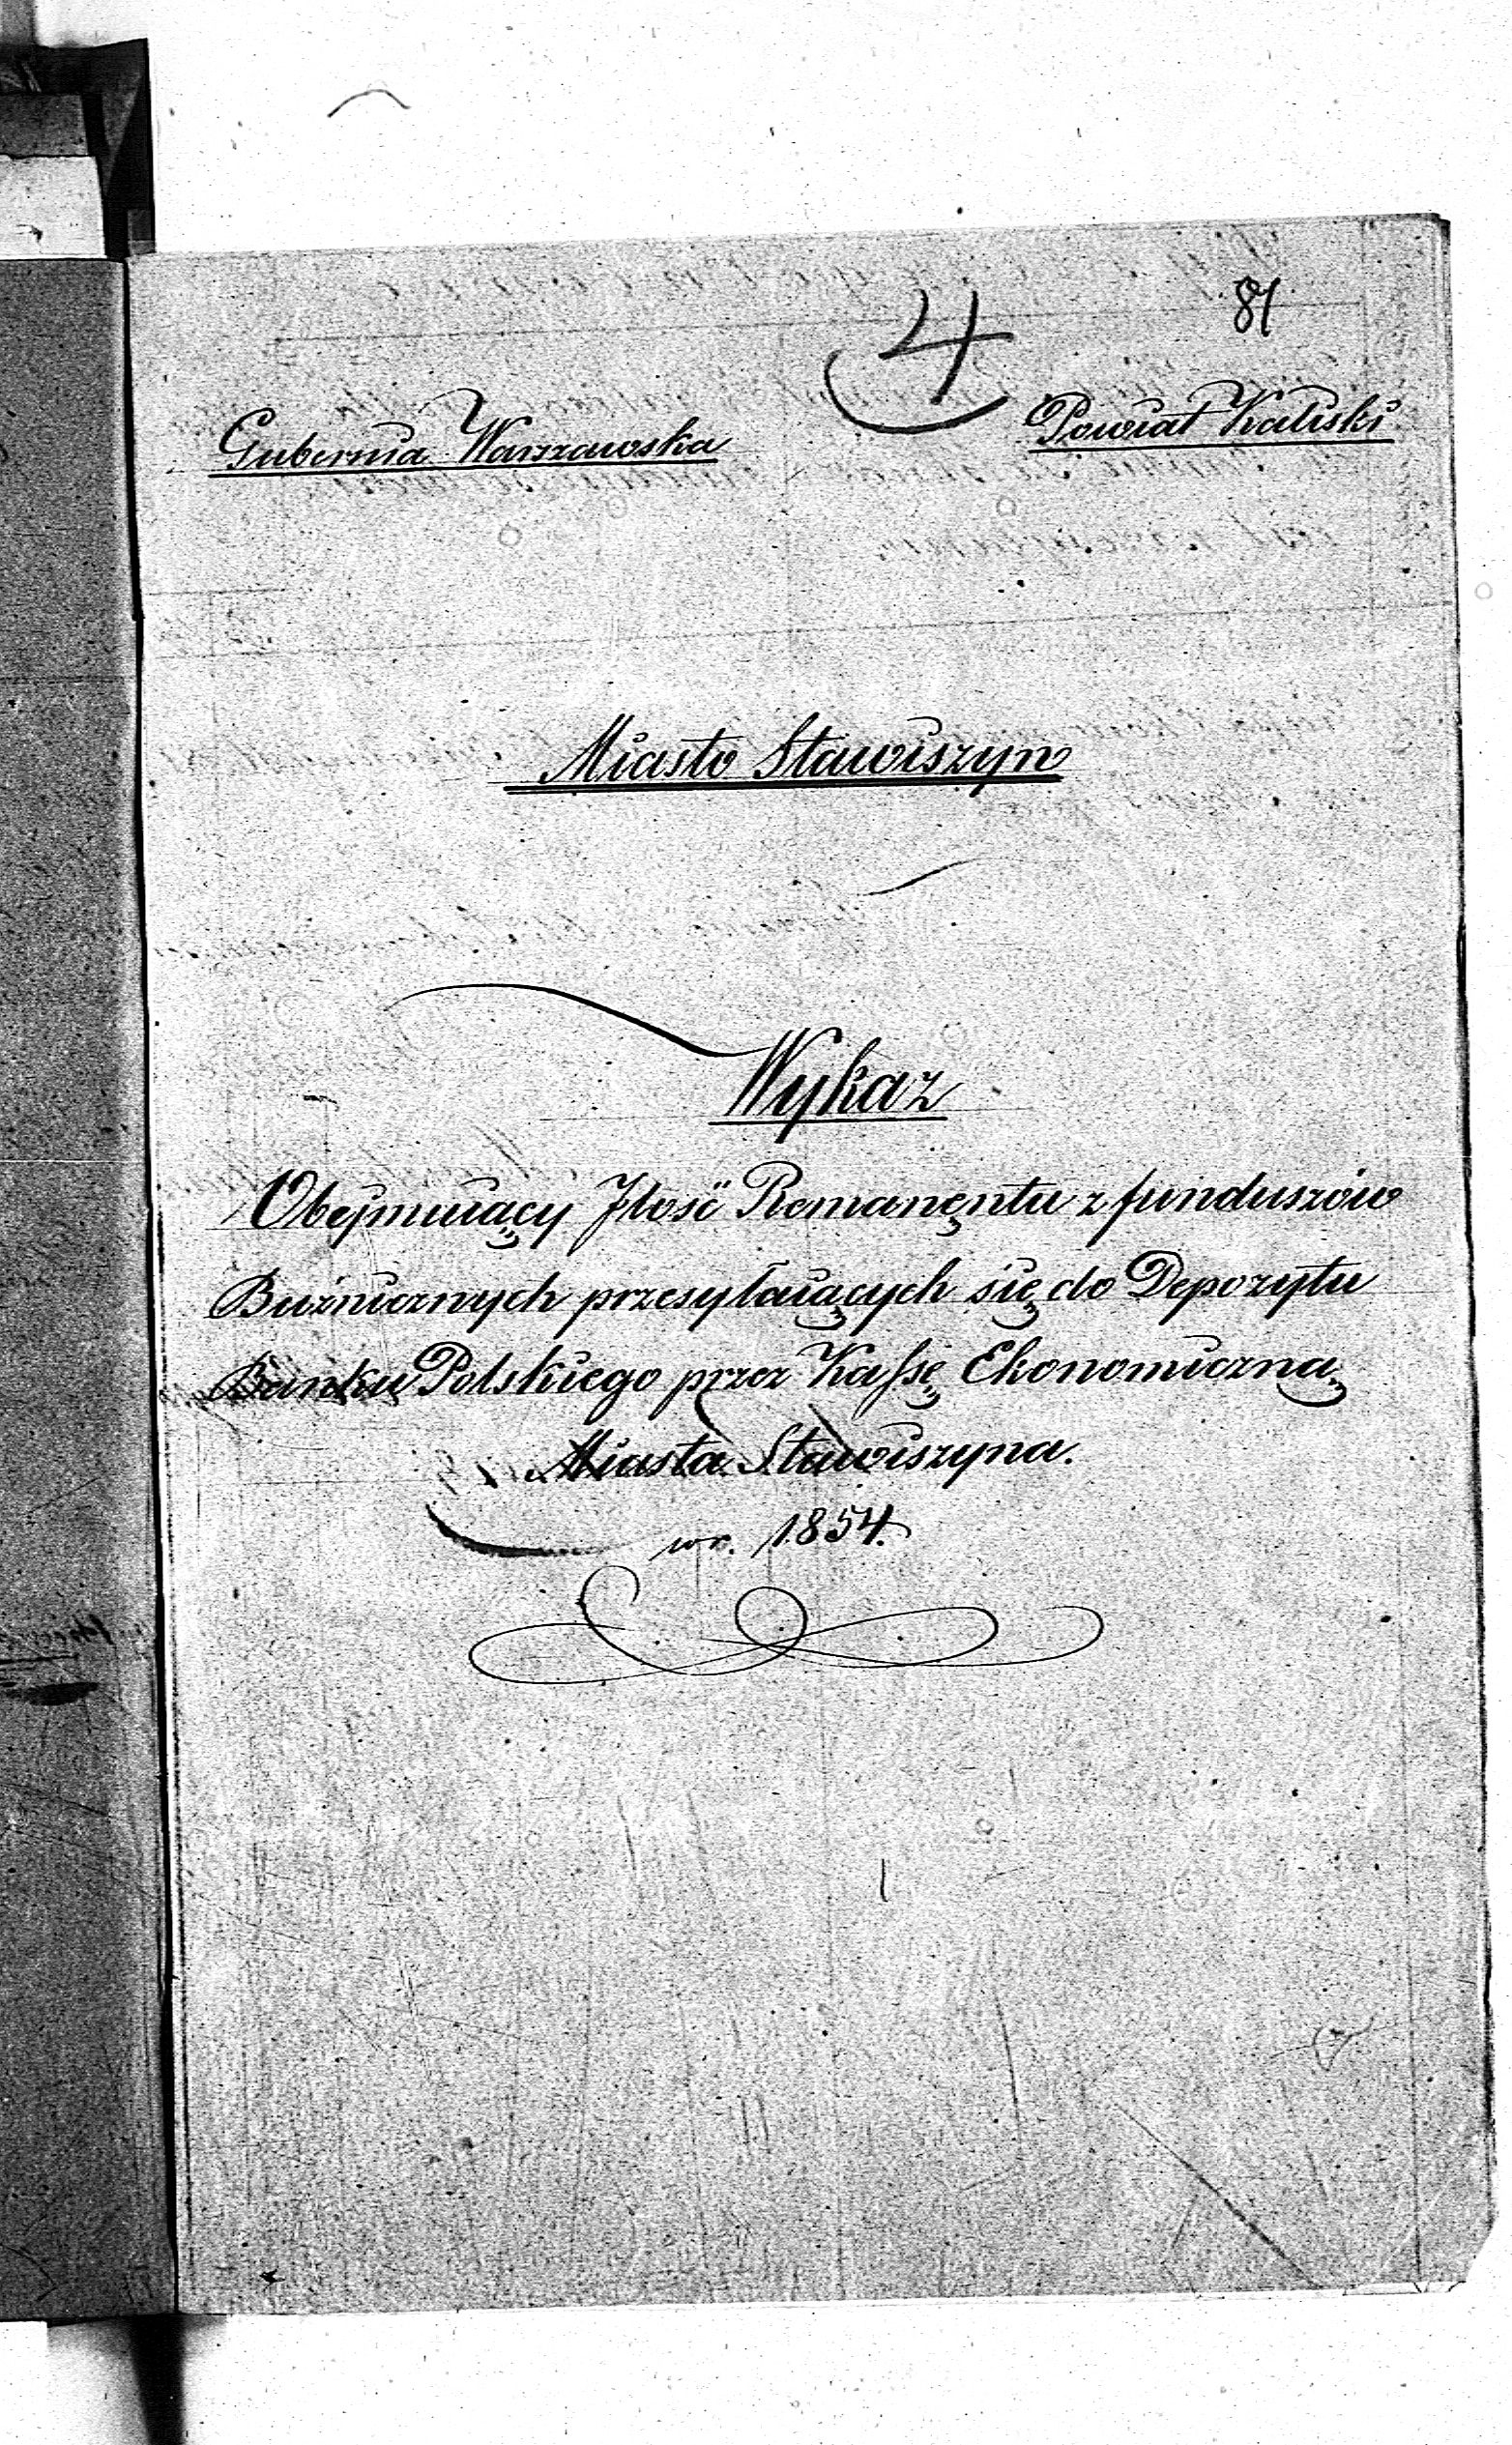 81
4
Gubernia Warszawska
Powiat Kaliski
Miasto Stawiszyn
Wykaz
Obejmuiący Jlość Remanęntu z funduszów
Bużnicznych przesyłaiących się do Depozytu
Banku Polskiego przez Kassę Ekonomiczną
Miasta Stawiszyna.
w r. 1854.